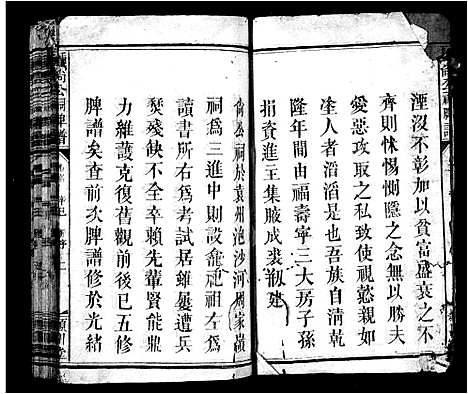 湮沒不彰加以貧富盛衰之不
齊則怵惕惻隱之念無以勝夫
愛惡攻取之私致使視懿親如
塗人者滔滔是也吾族自淸乾
隆年間由福壽寧三大房子孫
捐資進主集腋成裘剏建
尙公祠於袁州泡沙河州家嶺
祠爲三進中則設龕祀祖左爲
讀書所右爲考試居雖屢遭兵
燹殘缺不全幸賴先輩賢能鼎
力維護克復舊觀前後已五修
脾譜矣查前次脾譜修於光緒
尙公祠脾譜